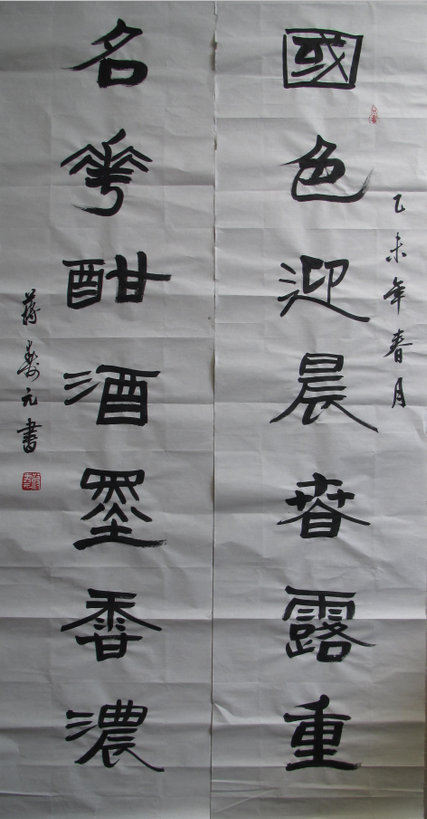 乙未年春月
國色迎晨春露重
名花酣酒墨香濃
蔣壽元書